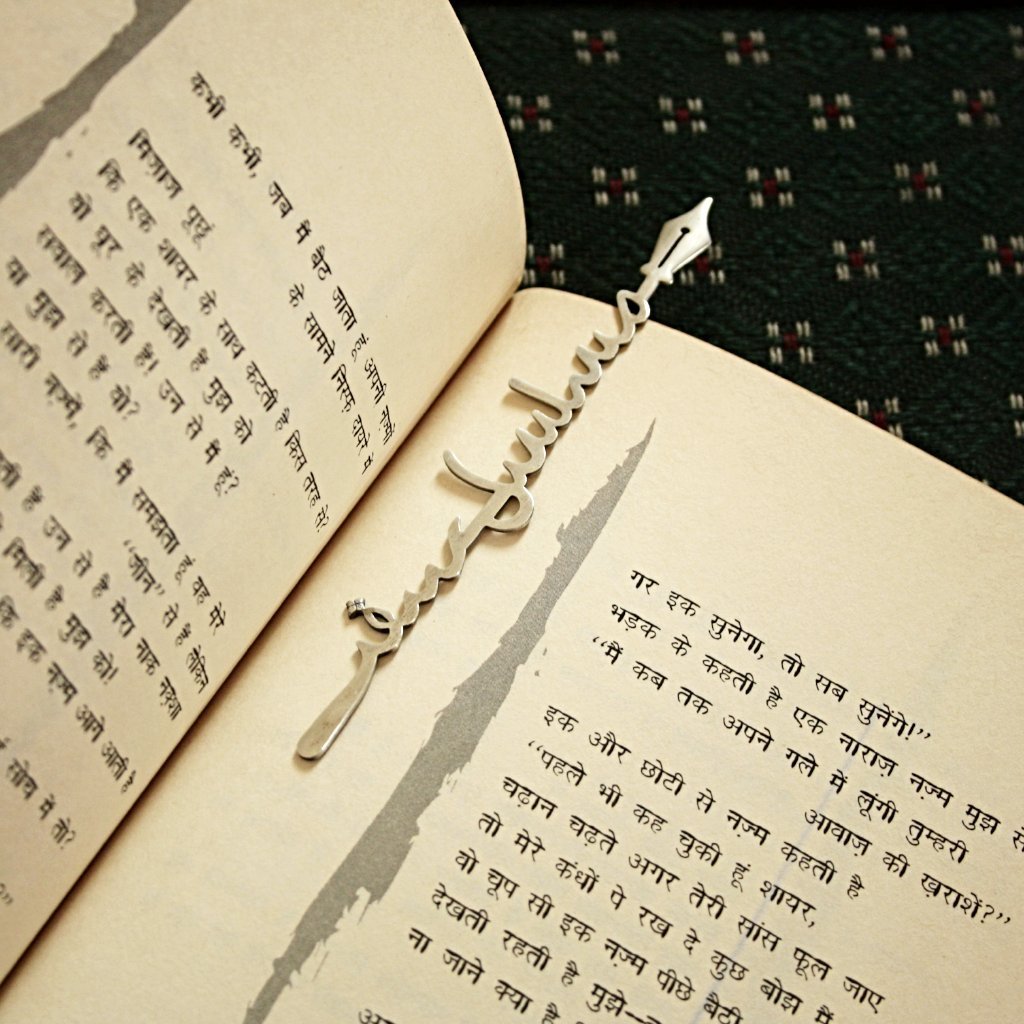 कभी कभी, जब मैं बैठ जाता हूं अपनी नज़्मों
के सामने निस्फ़ दायरे में
मिज़ाज पूछूं
कि एक शायर के साथ कटती है किस तरह से?
वो घूर के देखती है मुझ को
सवाल करती हैं! उन से मैं हूं?
या मुझ से हैं वो?
सारी नज़्में, कि मैं समझता हूं वह मेरे
"जीन" से हैं लेकिन
है उन से है मेरा नाक नक़्शा
मिली है मुझ को!
कि इक नज़्म आगे आती है
सोच में तो?
गर इक सुनेगा, तो सब सुनेंगे!"
भड़क के कहती है एक नाराज़ नज़्म मुझ से
"मैं कब तक अपने गले में लूंगी तुम्हरी
आवाज़ की ख़राशें?"
इक और छोटी से नज़्म कहती है
"पहले भी कह चुकी हूं शायर,
चढ़ान चढ़ते अगर तेरी सांस फूल जाए
तो मेरे कंधों पे रख दे कुछ बोझ मैं
वो चूप सी इक नज़्म पीछे बैठी
देखती रहती है मुझे—
ना जाने क्या है